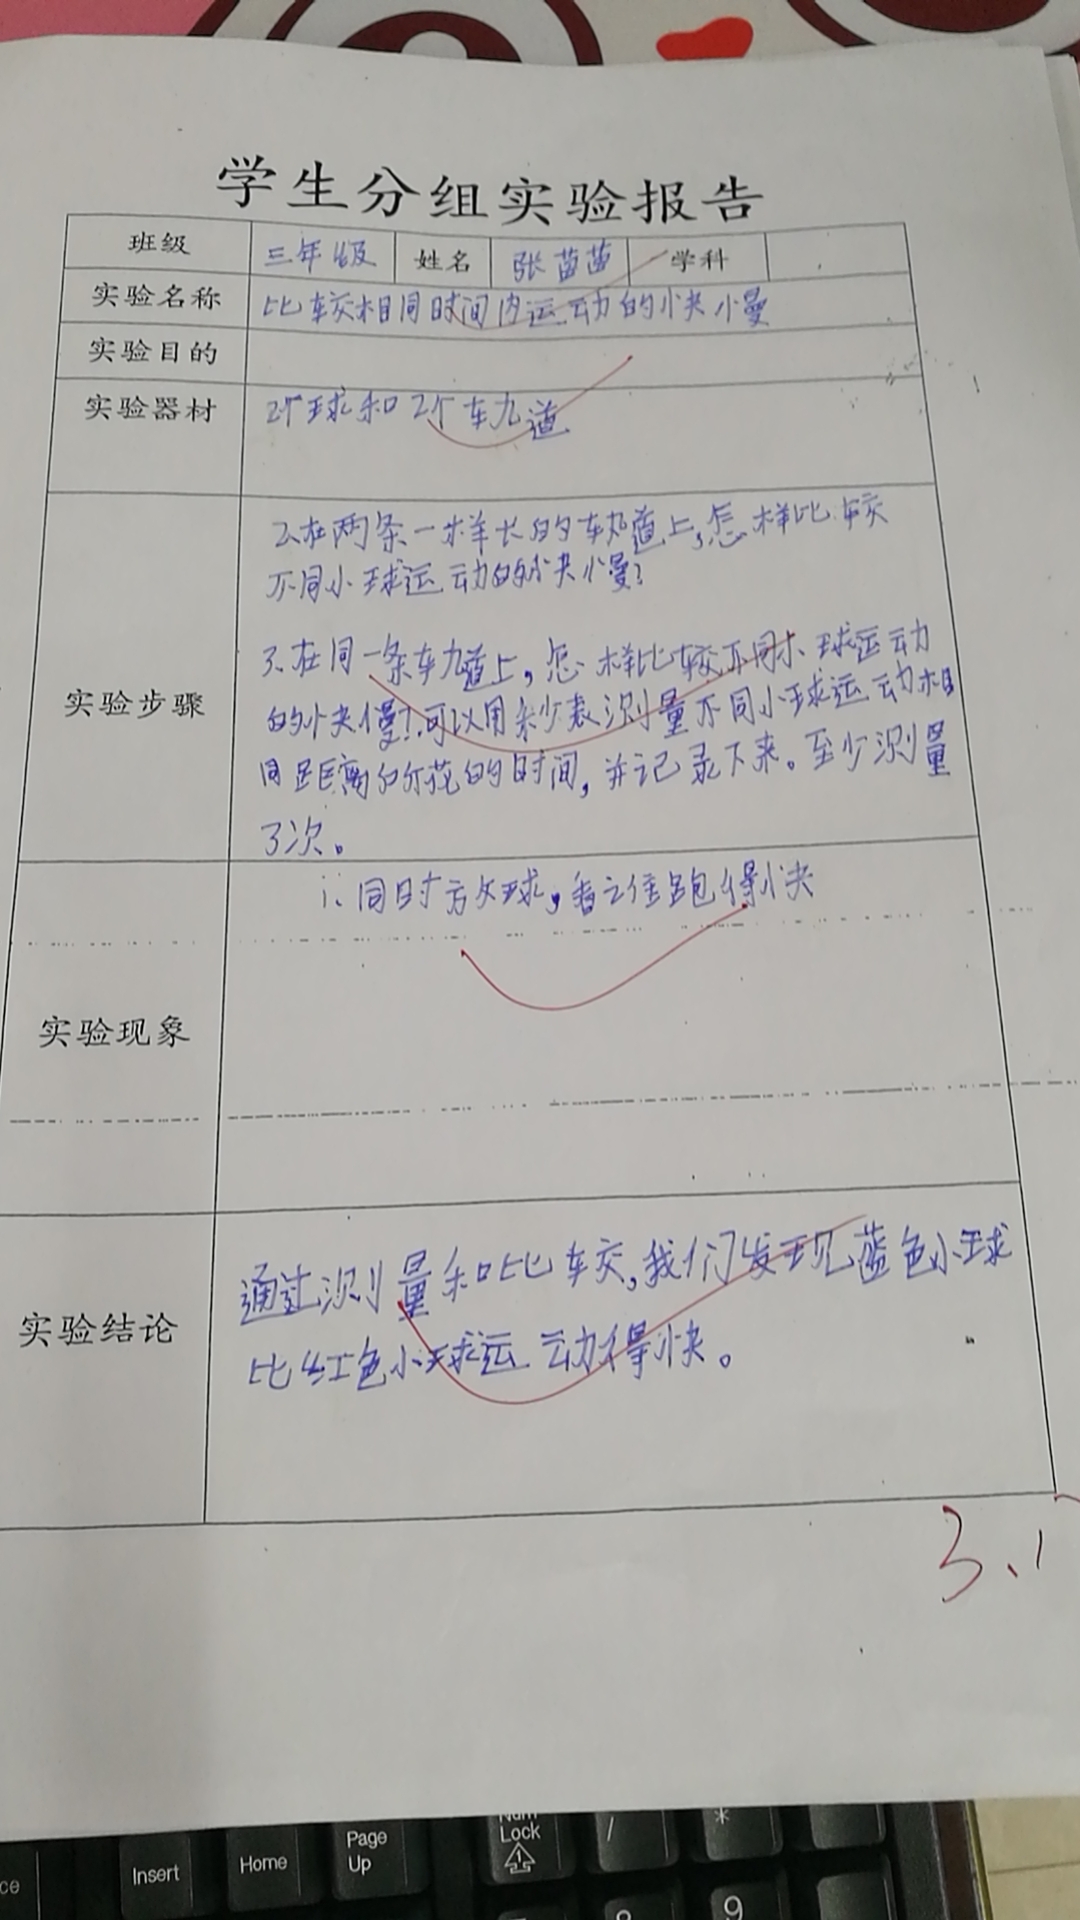 学生分组实验报告
班级 三年级 姓名 张苗苗 学科
实验名称 比较相同时间内运动的快慢
实验目的
实验器材 2个球和2个轨道
2、在两条一样长的轨道上,怎样比较
不同小球运动的快慢?
3、在同一条轨道上,怎样比较不同小球运动
的快慢?可以用秒表测量不同小球运动相
实验步骤
同距离所花的时间,并记录下来。至少测量
3次。
1、同时放球,看谁跑得快
实验现象
通过测量和比较,我们发现蓝色小球
实验结论
比红色小球运动得快。
3.1
Insert
Home
Page
Up
Num
Lock
/
*
9